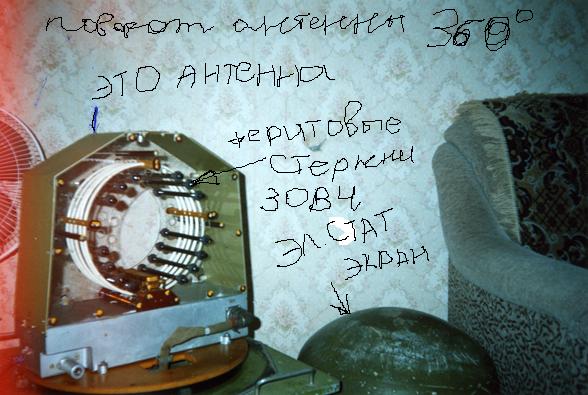 поворот антенны 360°
ЭТО АНТЕННЫ
феритовые
Стержни
ЗОВЧ
ЭЛ СТАТ
ЭКРАН